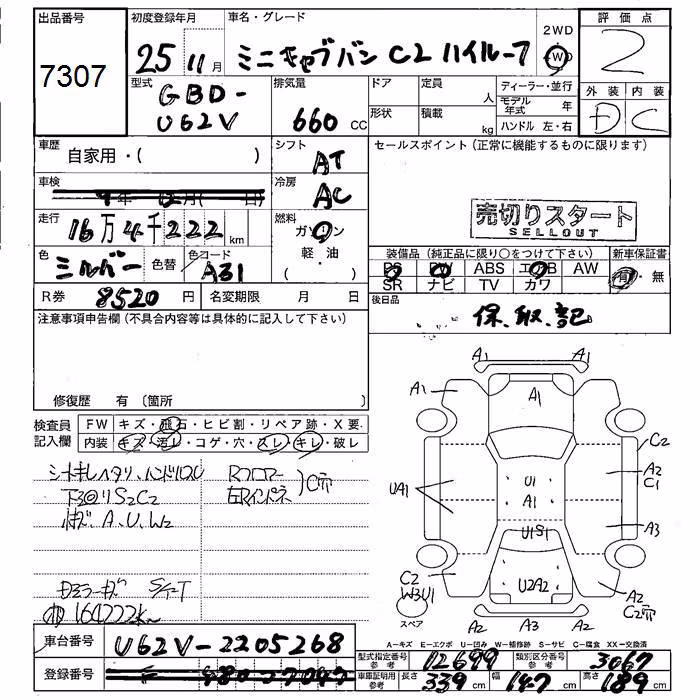 出品番号
7307
初度登録年月
25 11月
車名・グレード
ミニキャブバン C2 ハイルーフ
2WD
4WD
評価点
2
外装 内装
D C
型式
GBD-
U62V
排気量
660 CC
ドア
定員
人
ディーラー・並行
モデル年式 年
形状
積載
kg
ハンドル 左・右
車歴
自家用・( )
シフト
AT
セールスポイント (正常に機能するものに限ります)
車検
年 月( 日)
冷房
AC
売切りスタート
SELLOUT
走行
16万4千222km
燃料
ガソリン
軽・油
( ・ )
色
シルバー
色替
色コード
A31
装備品 (純正品に限り○をつけて下さい)
新車保証書
PS PW ABS エアB AW
SR ナビ TV カワ
有・無
R券
8520円
名変期限 月 日
後日品
保、取、記
注意事項申告欄 (不具合内容等は具体的に記入して下さい)
修復歴 有 (箇所
検査員
記入欄
FW キズ・飛石・ヒビ割・リペア跡・X要
内装 キズ・汚レ・コゲ・穴・スレ・キレ・破レ
シートキレヘタリ、ハンドルスレ
下回リS2C2
A、U、W2
Rフロアー
左Rインパネ
C穴
S/T
164222k
A1 A1 A1 A1 A1
C2
A2
C1
UA1
U1
A1
A3
U1S1
C2
W3U1
U2A2
A2
C2穴
スペア
A2 A3 A2
車台番号
U62V-2205268
登録番号
480
A=キズ E=エクボ U=凹み W=補修跡 S=サビ C=腐食 XX=交換済
型式指定番号
参考
12699
類別区分番号
参考
3067
車庫証明用
参考
長さ
339cm
幅
147cm
高さ
189cm